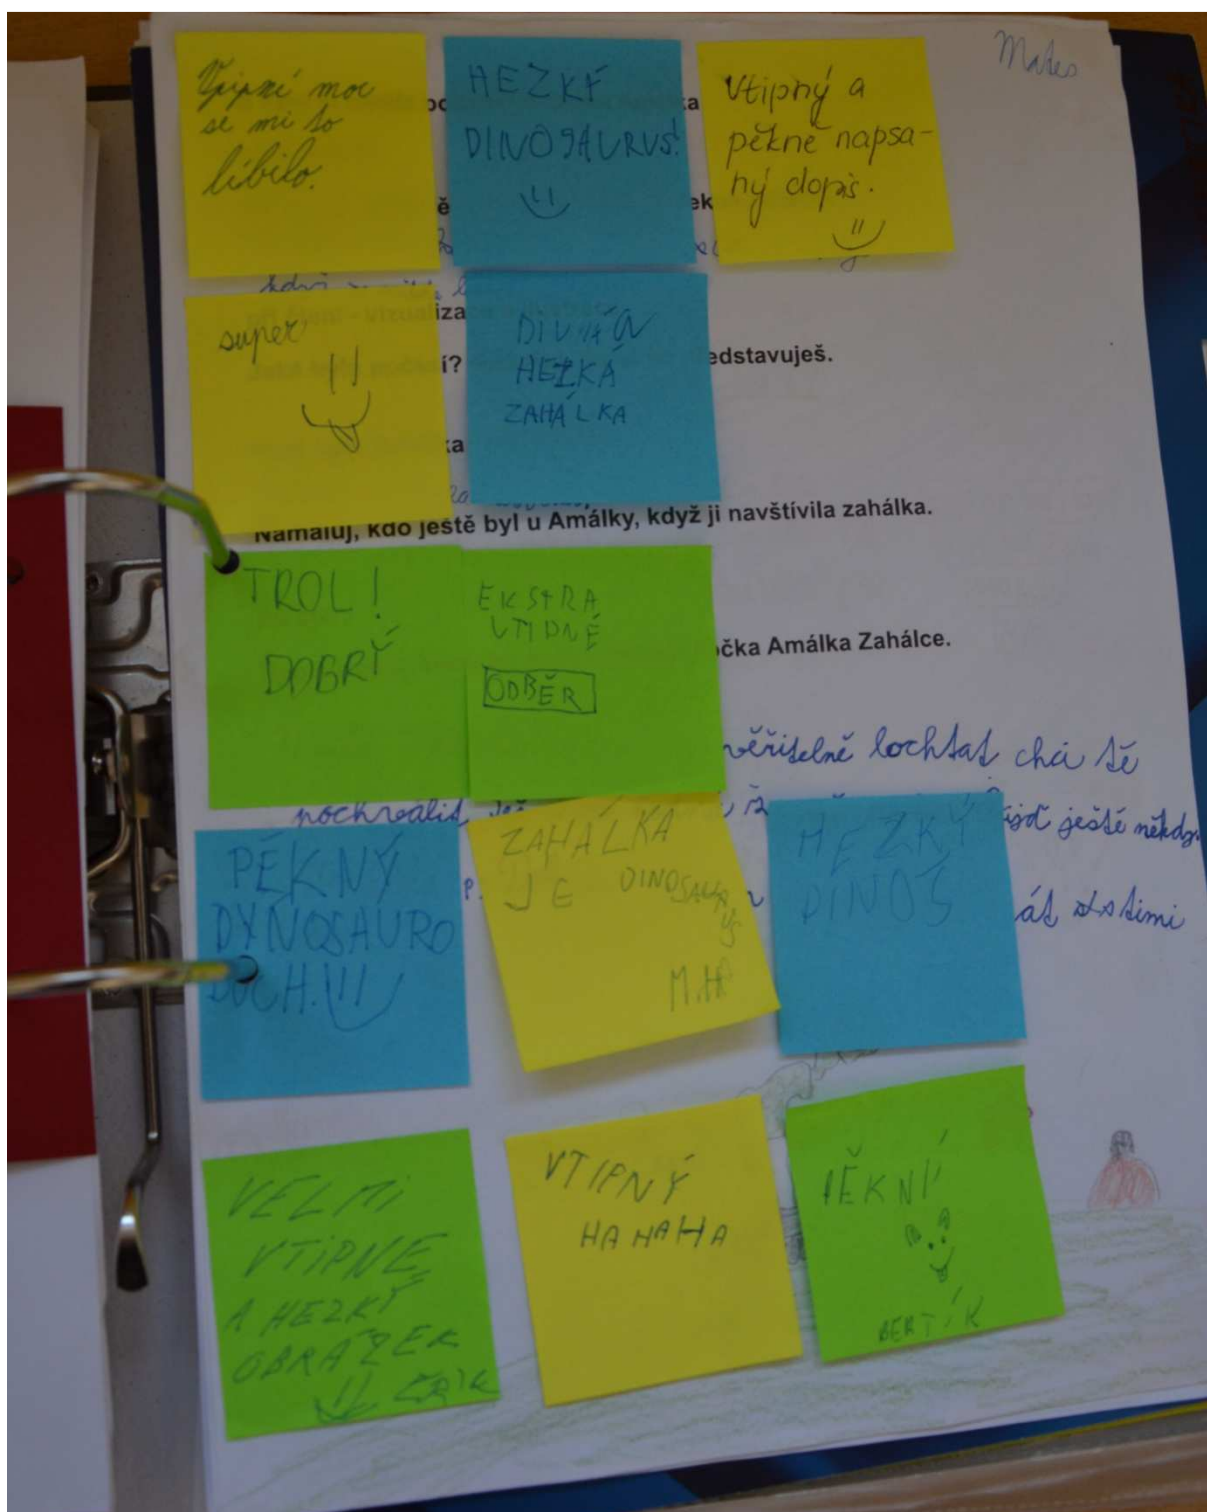 Mates
Vtipné moc
se mi to
líbilo.
HEZKÝ
DINOSAURUS!
Vtipný a
pěkně napsa-
ný dopis.
super
HEZKÁ
ZAHÁLKA
edstavuješ.
Namaluj, kdo ještě byl u Amálky, když ji navštívila zahálka.
TROL!
DOBRÝ
EKSTRA
VTIPNÉ
ODBĚR
očka Amálka Zahálce.
věřitelně lochtat chci tě
pochválit
ijď ještě někdy
át s timi
PĚKNÝ
DYNOSAURO
ZAHÁLKA
JE DINOSAURUS
M.H.
HEZKÝ
DINOS
VELMI
VTIPNE
A HEZKÝ
OBRÁZEK
VTIPNÝ
HAHAHA
PĚKNÍ
BERTÍK